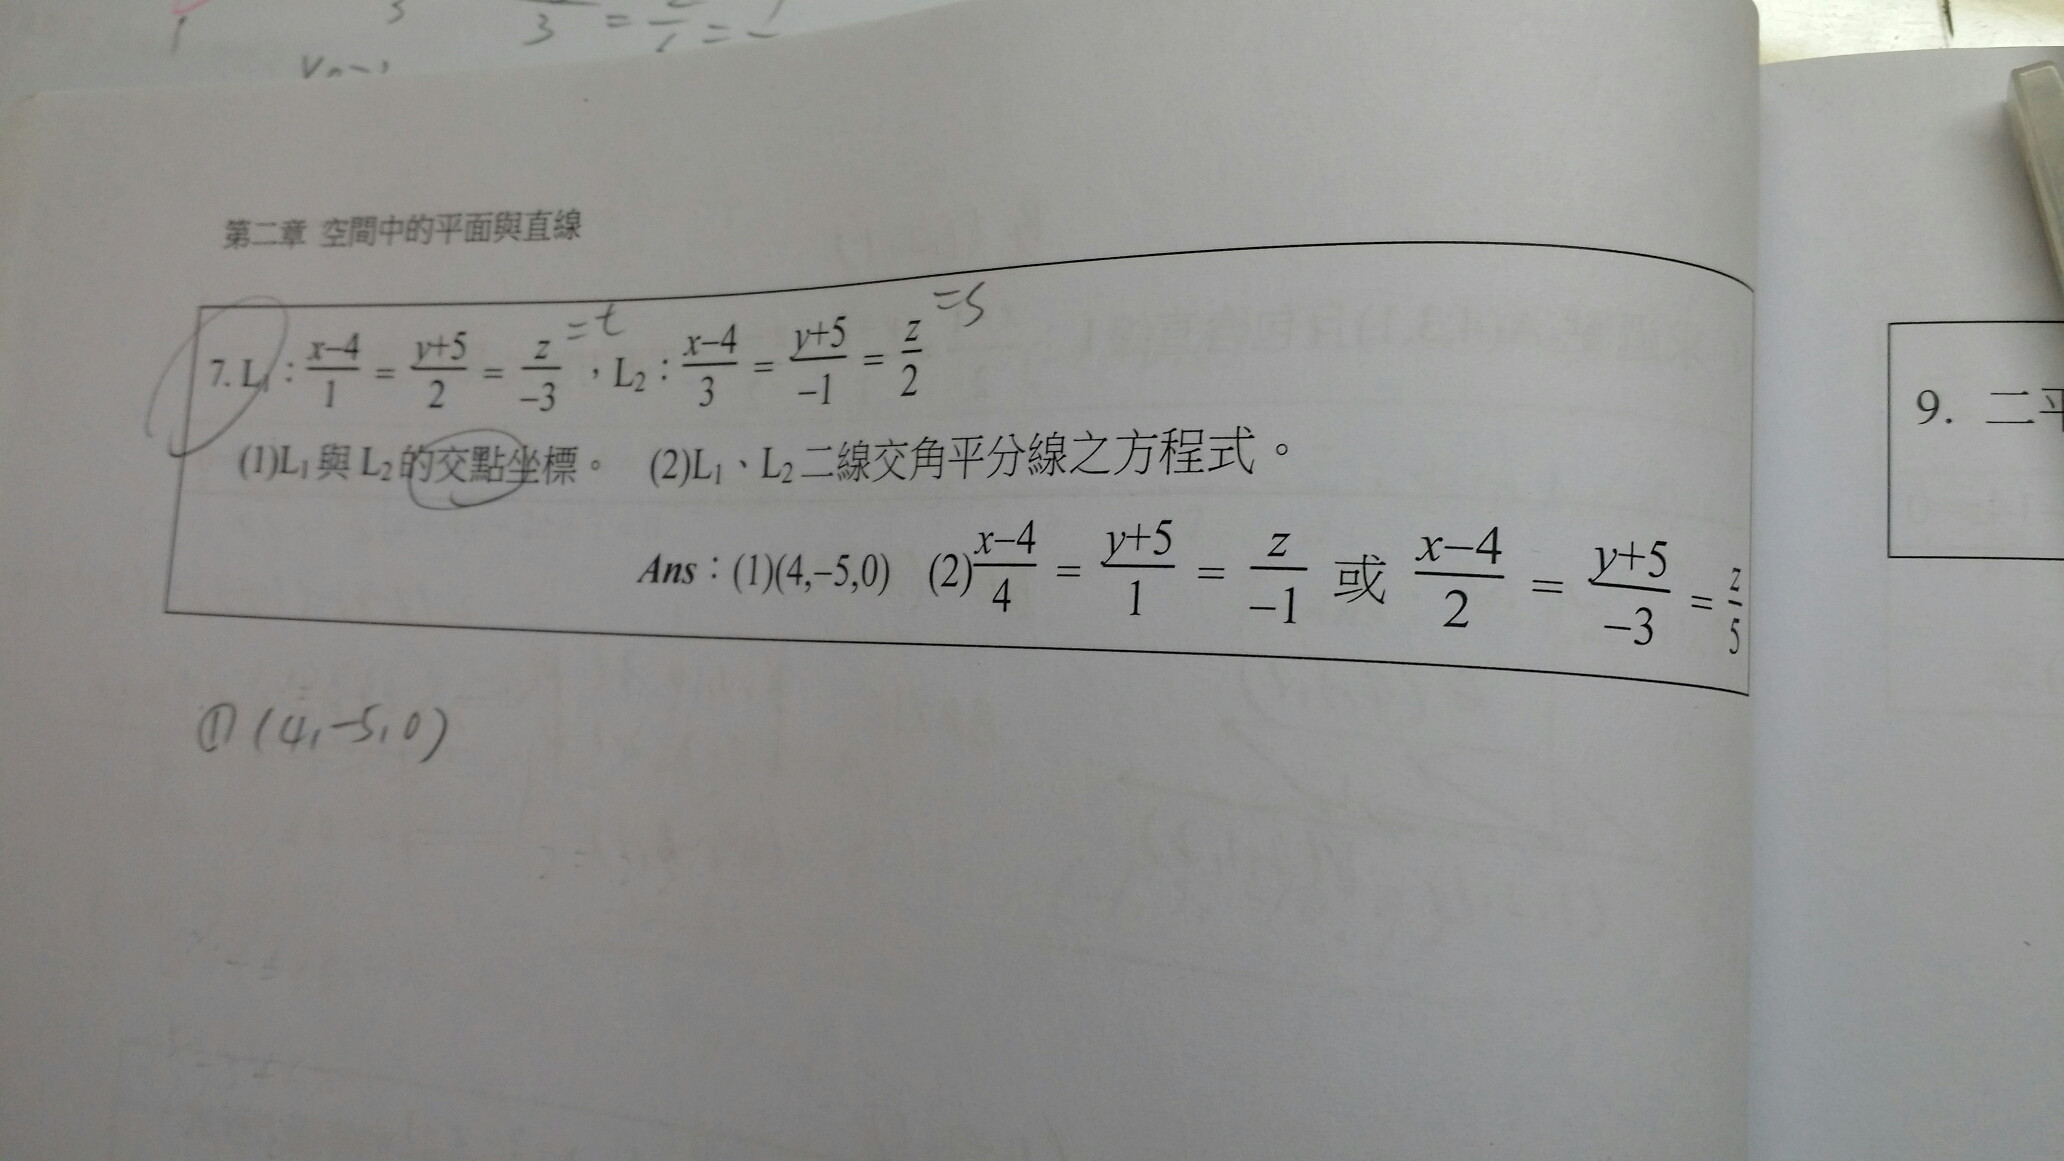 第二章 空間中的平面與直線
7. L₁：(x−4)/1 = (y+5)/2 = z/−3 =t ，L₂：(x−4)/3 = (y+5)/−1 = z/2 =s
(1)L₁與 L₂的交點坐標。 (2)L₁、L₂二線交角平分線之方程式。
Ans：(1)(4,−5,0) (2)(x−4)/4 = (y+5)/1 = z/−1 或 (x−4)/2 = (y+5)/−3 = z/5
① (4,−5,0)
9. 二平